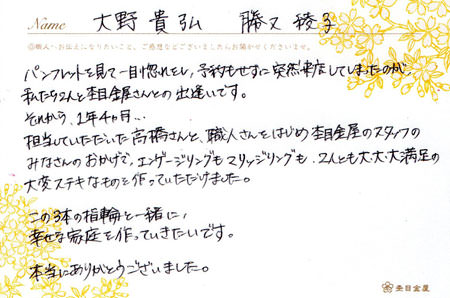 Name 大野 貴弘 勝又 稜子
◎職人へお伝えになりたいこと、ご感想などございましたらお聞かせくださいませ。
パンフレットを見て一目惚れをし、予約もせずに突然来店してしまったのが、
私たち2人と杢目金屋さんとの出逢いです。
それから、1年4ヶ月…
担当していただいた高橋さんと、職人さんをはじめ杢目金屋のスタッフの
みなさんのおかげで、エンゲージリングもマリッジリングも、2人とも大・大・大満足の
大変ステキなものを作っていただけました。
この3本の指輪と一緒に、
幸せな家庭を作っていきたいです。
本当にありがとうございました。
杢目金屋